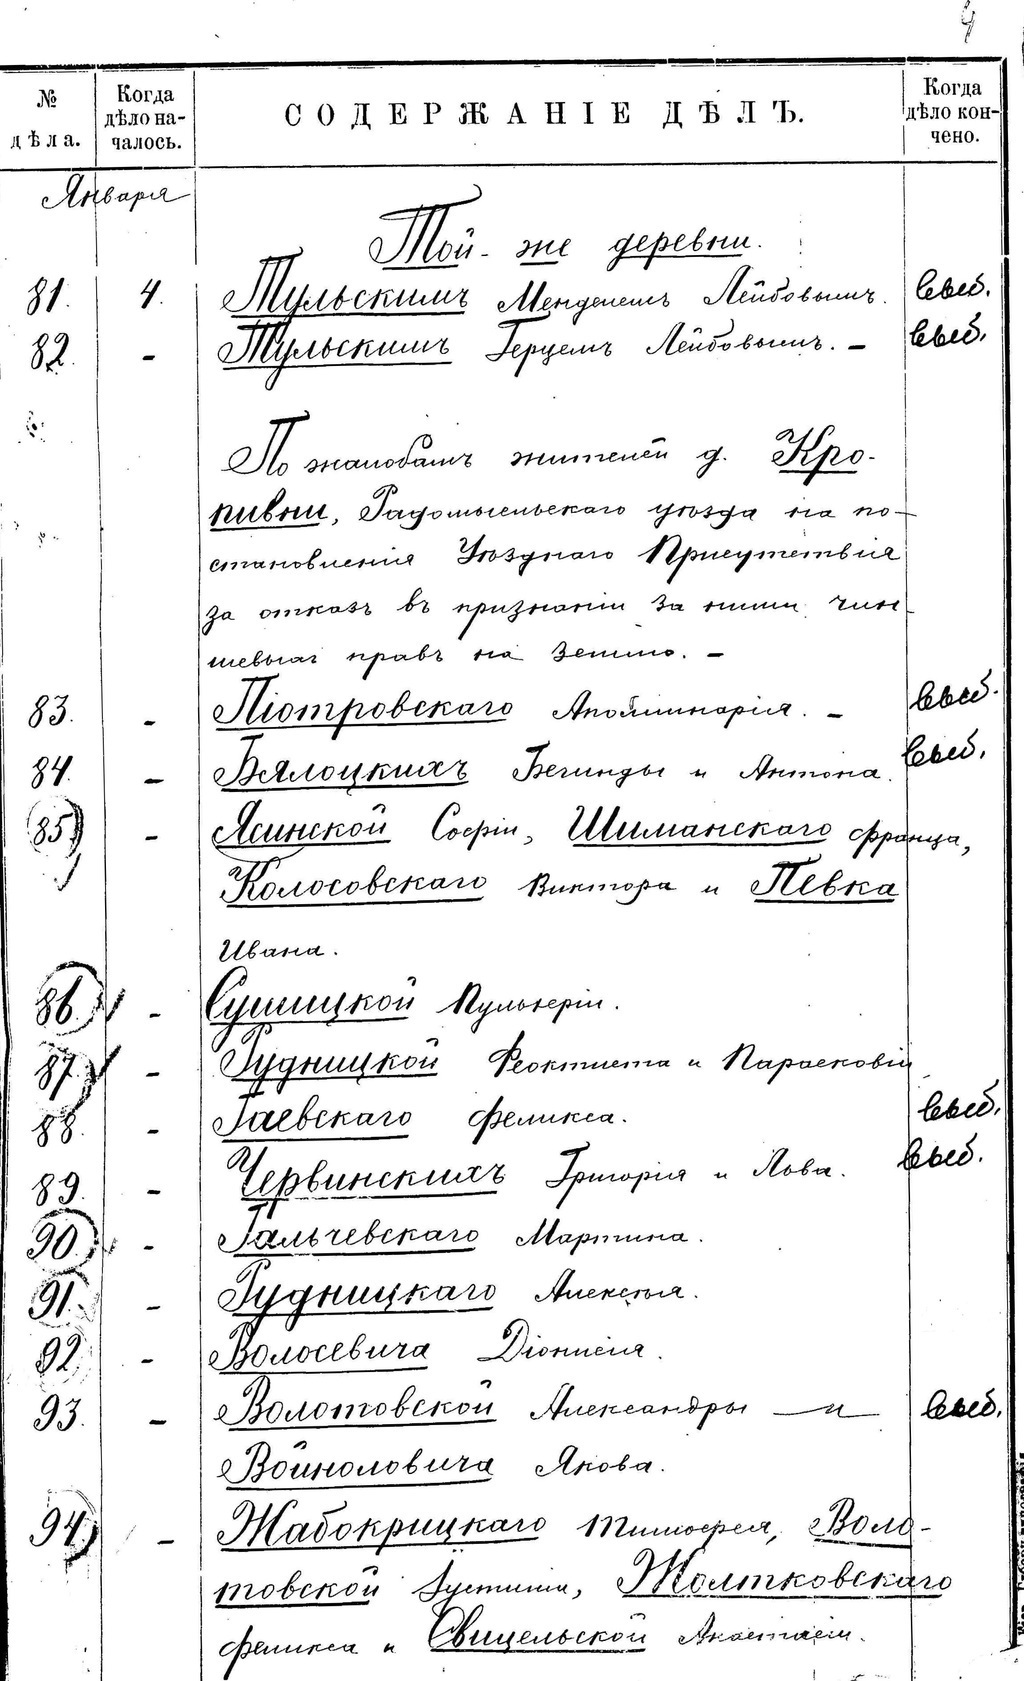 4
№ дѣла.
Когда дѣло началось.
СОДЕРЖАНІЕ ДѢЛЪ.
Когда дѣло кончено.
Января
Той-же деревни.
81. 4. Тульскимъ Менделемъ Лейбовымъ. выб.
82. - Тульскимъ Герцемъ Лейбовымъ. - выб.
По жалобамъ жителей д. Кро-
пивни, Радомысльскаго уѣзда на по-
становленія Уѣзднаго Присутствія
за отказъ въ признаніи за ними чин-
шевыхъ правъ на землю. -
83. - Піотровскаго Аполлинарія. - выб.
84. - Бялоцкихъ и Антона. выб.
85 - Ясинской Софіи, Шиманскаго Франца,
Колосовскаго Виктора и Певка
Ивана.
86 - Сушицкой Пульхеріи.
87. - Рудницкой Феоктиста и Парасковіи
88. - Гаевскаго Феликса. выб.
89. - Червинскихъ Григорія и Льва. выб.
90. - Гальчевскаго Мартина.
91. - Рудницкаго Алексѣя.
92. - Волосевича Діонисія.
93. - Волотовской Александры — и выб.
Войноловича Якова.
94. - Жабокрицкаго Тимофея, Воло-
товской Густины, Жолтковскаго
Феликса и Свицельской Анастасіи.